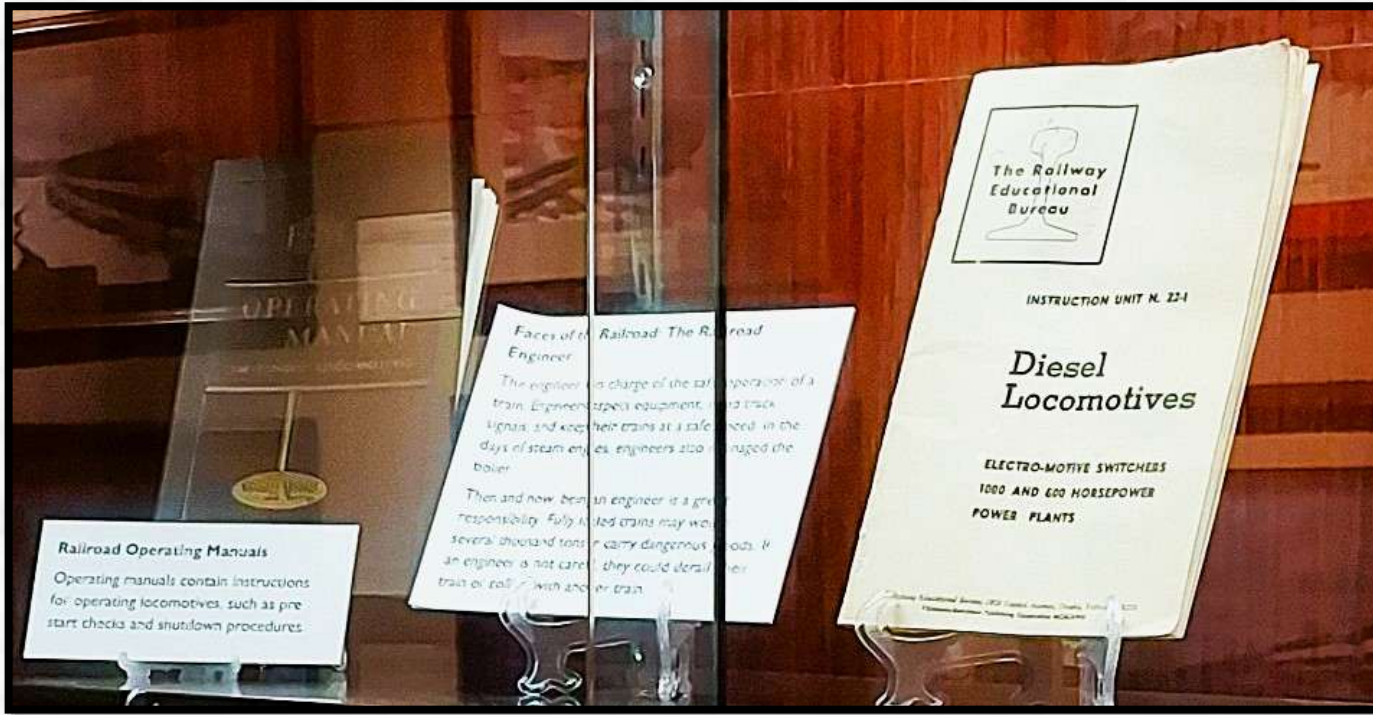 OPERATING
MANUAL
Railroad Operating Manuals
Operating manuals contain instructions
for operating locomotives, such as pre
start checks and shutdown procedures
Faces of th Railroad: The Ra road
Engineer
The engineer is charge of the safe operation of a
train. Engineer spect equipment, track
signals, and keep heir trains at a safe speed. In the
days of steam engines, engineers also naged the
boiler
Then and now, bein an engineer is a great
responsibility. Fully lo ded trains may weigh
several thousand tons r carry dangerous goods. If
an engineer is not caref , they could derail their
train or collide with ano er train.
The Railway
Educational
Bureau
INSTRUCTION UNIT N. 22-1
Diesel
Locomotives
ELECTRO-MOTIVE SWITCHERS
1000 AND 600 HORSEPOWER
POWER PLANTS